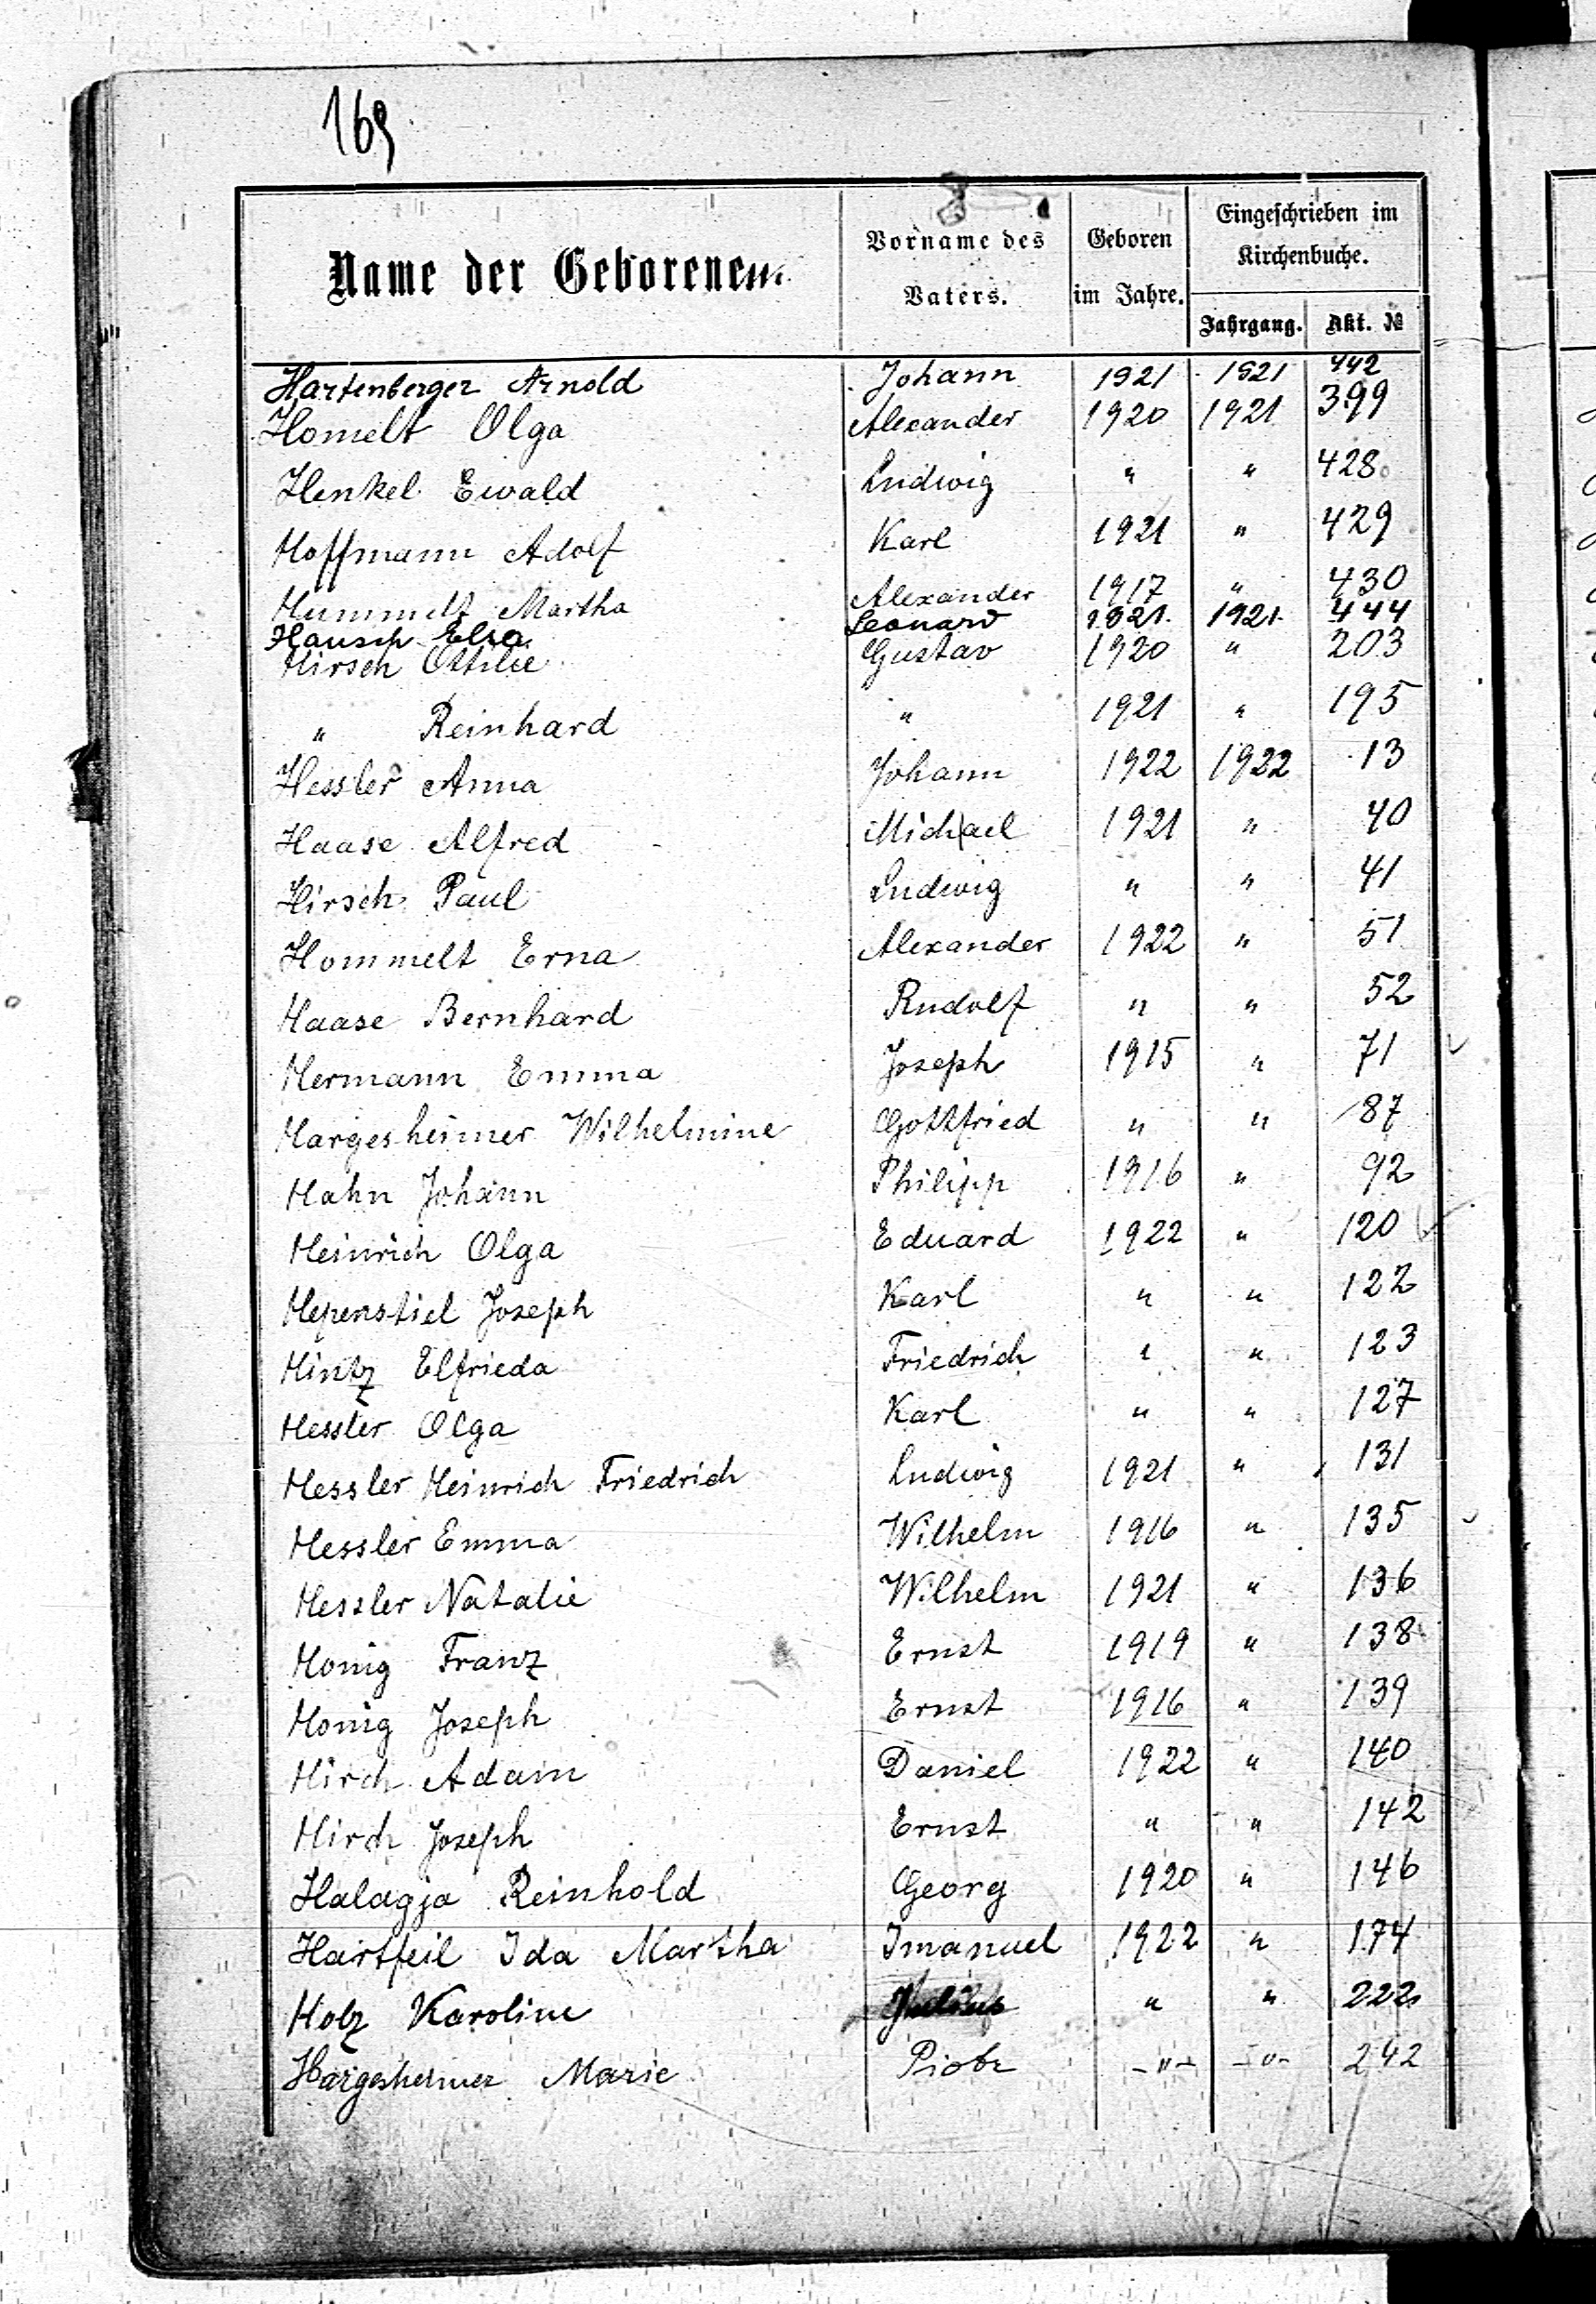 169
Name der Geborenen.
Vorname des Vaters.
Geboren im Jahre.
Eingeschrieben im Kirchenbuche.
Jahrgang. Akt. №
Hartenberger Arnold Johann 1921 1921 442
Homelt Olga Alexander 1920 1921 399
Henkel Ewald Ludwig " " 428
Hoffmann Adolf Karl 1921 " 429
Hummelt Martha Alexander 1917 " 430
Hausch Elsa Leonard 1921 1921 444
Hirsch Ottilie Gustav 1920 " 203
" Reinhard " 1921 " 195
Hessler Anna Johann 1922 1922 13
Haase Alfred Michael 1921 " 40
Hirsch Paul Ludwig " " 41
Hommelt Erna Alexander 1922 " 51
Haase Bernhard Rudolf " " 52
Hermann Emma Joseph 1915 " 71
Hargesheimer Wilhelmine Gottfried " " 87
Hahn Johann Philipp 1916 " 92
Heinrich Olga Eduard 1922 " 120
Hepenstiel Joseph Karl " " 122
Hintz Elfrieda Friedrich " " 123
Hessler Olga Karl " " 127
Hessler Heinrich Friedrich Ludwig 1921 " 131
Hessler Emma Wilhelm 1916 " 135
Hessler Natalie Wilhelm 1921 " 136
Honig Franz Ernst 1919 " 138
Honig Joseph Ernst 1916 " 139
Hirch Adam Daniel 1922 " 140
Hirch Joseph Ernst " " 142
Halagja Reinhold Georg 1920 " 146
Hartfeil Ida Martha Imanuel 1922 " 174
Holz Karoline Julius " " 222
Hargesheimer Marie Piotr -"- -"- 242